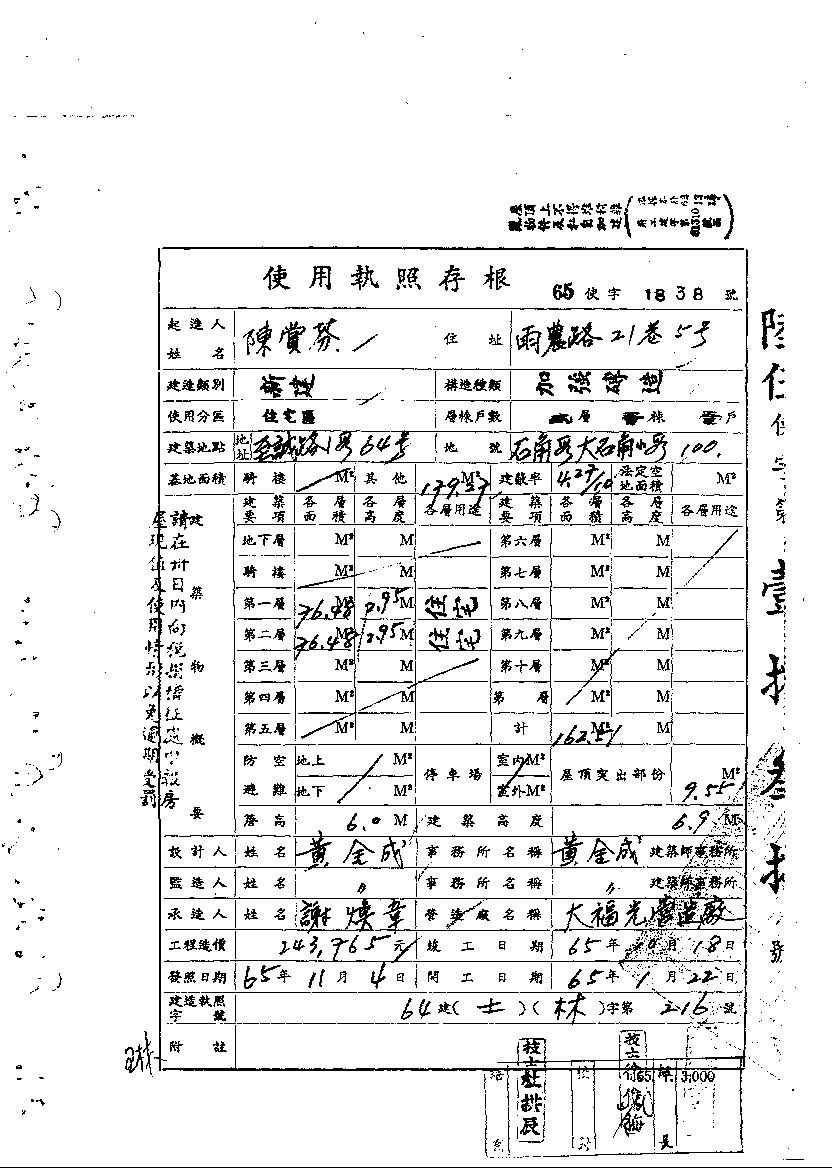 使用執照存根
65使字1838號
起造人姓名 陳賞芬 住址 雨農路21巷5号
建造類別 新建 構造種類 加強磚造
使用分區 住宅區 層棟戶數 層 棟 戶
建築地點 地址 至誠路1段64号 地號 石角段大石角小段100.
基地面積 騎樓 M² 其他 179.37 M² 建蔽率 4.27/10 法定空地面積 M²
建築物概要
建築要項 各層面積 各層高度 各層用途 建築要項 各層面積 各層高度 各層用途
地下層 M² M 第六層 M² M
騎樓 M² M 第七層 M² M
第一層 76.48 M² 2.95 M 住宅 第八層 M² M
第二層 76.48 M² 2.95 M 住宅 第九層 M² M
第三層 M² M 第十層 M² M
第四層 M² M 第 層 M² M
第五層 M² M 計 162.51 M²
防空避難 地上 M² 地下 M² 停車場 室內M² 室外M² 屋頂突出部份 9.55 M²
簷高 6.0 M 建築高度 6.9 M
設計人 姓名 黃金成 事務所名稱 黃金成 建築師事務所
監造人 姓名 〃 事務所名稱 〃 建築師事務所
承造人 姓名 謝煥章 營造廠名稱 大福光營造廠
工程造價 243,765元 竣工日期 65年 月18日
發照日期 65年11月4日 開工日期 65年1月22日
建造執照字號 64建(士)(林)字第216號
附註
請在卅日內向稅捐稽征處申報房
屋現值及使用情形以免逾期受罰
技士
65. 3,000